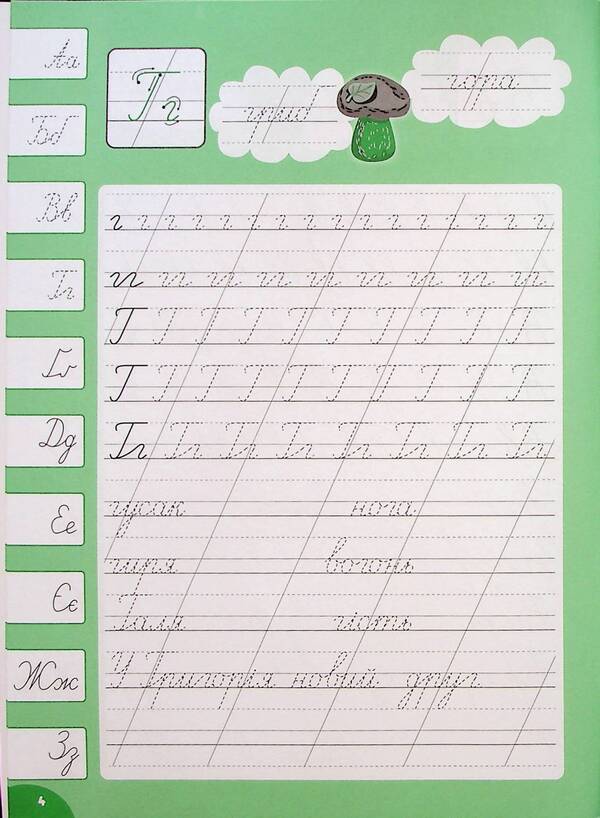 Аа
Бб
Вв
Гг
Ґґ
Дд
Ее
Єє
Жж
Зз
Гг
гриб
гора
г г г г г г г г г г г г г г г г
гг гг гг гг гг гг гг гг гг
Г Г Г Г Г Г Г Г Г Г
Г Г Г Г Г Г Г Г Г Г
Гг Гг Гг Гг Гг Гг Гг Гг
гусак нога
гиря вогонь
Галя гість
У Григорія новий друг
4